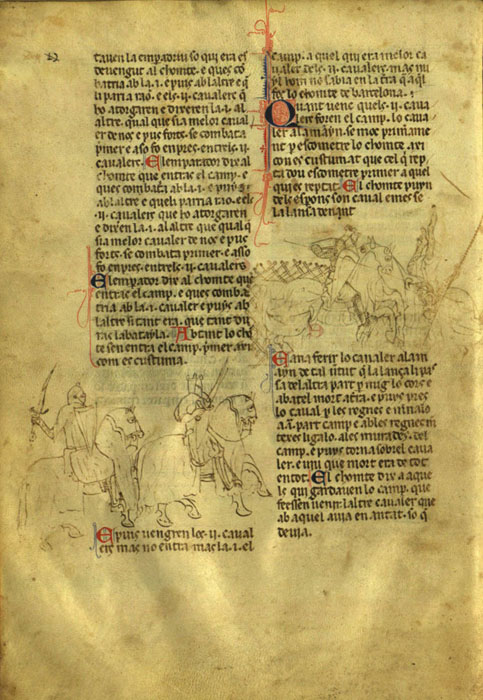 taven la emperadriu so qui era es
devengut al chomte. e ques co
batria ab la .i. e puys ab laltre e que li
u paria rao. e els .ii. cavalers q̃
ho atorgaren e dixeren la .i. al
altre. qual que sia melor cavaler
de nos e pus forts. se combata
primer e aso fo enpres entrels .ii.
cavalers. El emperador dix al
chomte que entras el camp. e
ques combata ab la .i. e puys ab
laltre e que li paria rao. e els
.ii. cavalers que ho atorgaren
e dixeren la .i. al altre que qual q̃
sia melor cavaler de nos e pus
forts. se combata primer. e asso
fo enpres. entrels .ii. cavalers
El emperador dix al chomte que
entras el camp. e ques comba
tria ab la .i. cavaler e puys ab
laltre si tant era. que tant du
ras la batayla. Ab tant lo cho
te sen entra el camp. primer. axi
com es custuma.
E puys vengren los .ii. caval
ers mas no entra mas la .i. el
camp. aquel qui era melor ca
valer dels .ii. cavalers. mas nu
yl hom no sabia en la tr̃a q̃ aq̃l
fos lo chomte de barcelona.
Quant vench quels .ii. cava
lers foren el camp. lo cava
ler alamayn. se moc primame
nt per escometre lo chomte. axi
con es custumat que cel q̃ rep
ta dou escometre primer a quel
qui es reptat. E lo chomte puyn
de esperons son caval e mes se
la lansa denant
E ana ferir lo cavaler alam
ayn de tal virtut q̃ la lança li pas
sa delaltra part per mig lo cors e
abatel mort a tr̃a. e puys pres
lo caval per les regnes e mnalo
a .i.ª part camp e ab les regnes m
texes ligalo. a les murades. del
camp. e puys torna sobrel cava
ler. e viu que mort era de tot
en tot. E lo chomte dix a aque
ls qui gardaven lo camp. que
fessen venir laltre cavaler que
ab aquel avia en antat. so q̃
devia.